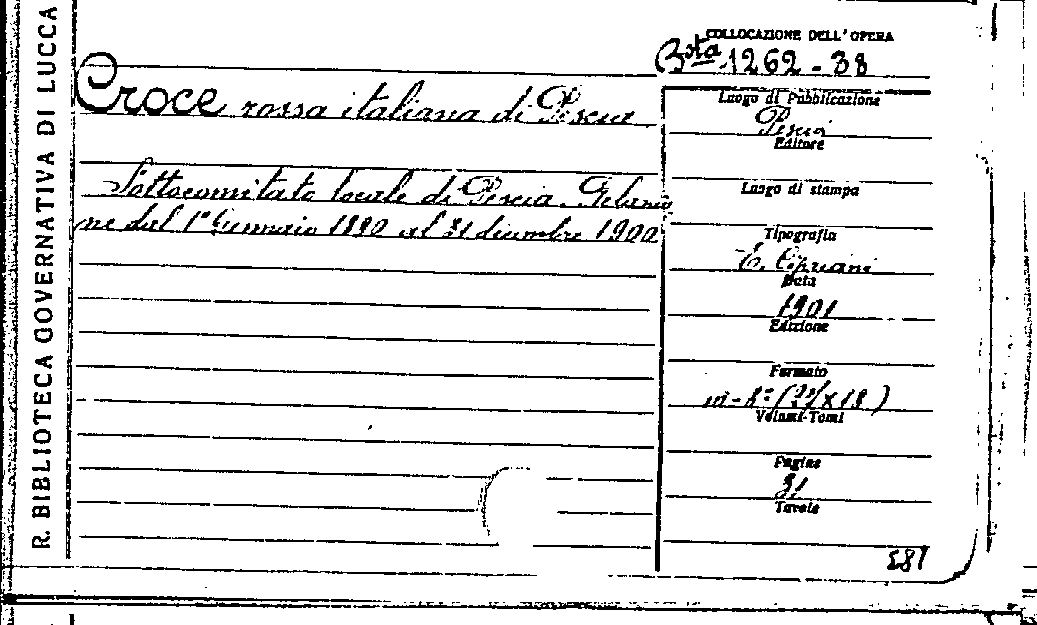 R. BIBLIOTECA GOVERNATIVA DI LUCCA
COLLOCAZIONE DELL'OPERA
Bsta 1262-38
Croce rossa italiana di Pescia
Sottocomitato locale di Pescia. Relazio
ne dal 1° Gennaio 1890 al 31 dicembre 1900
Luogo di Pubblicazione
Pescia
Editore
Luogo di stampa
Tipografia
E. Cipriani
Data
1901
Edizione
Formato
in-8° (27x18)
Volumi-Tomi
Pagine
31
Tavole